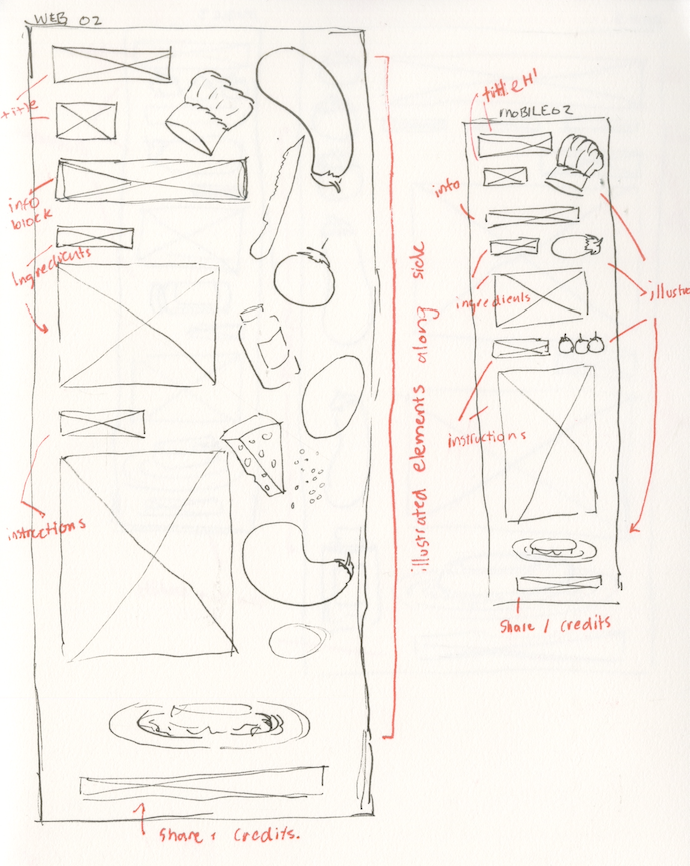 WEB 02
title
info
block
Ingredients
instructions
Share + Credits.
illustrated elements along side
title H1
MOBILE 02
info
ingredients
illustra
instructions
Share / Credits